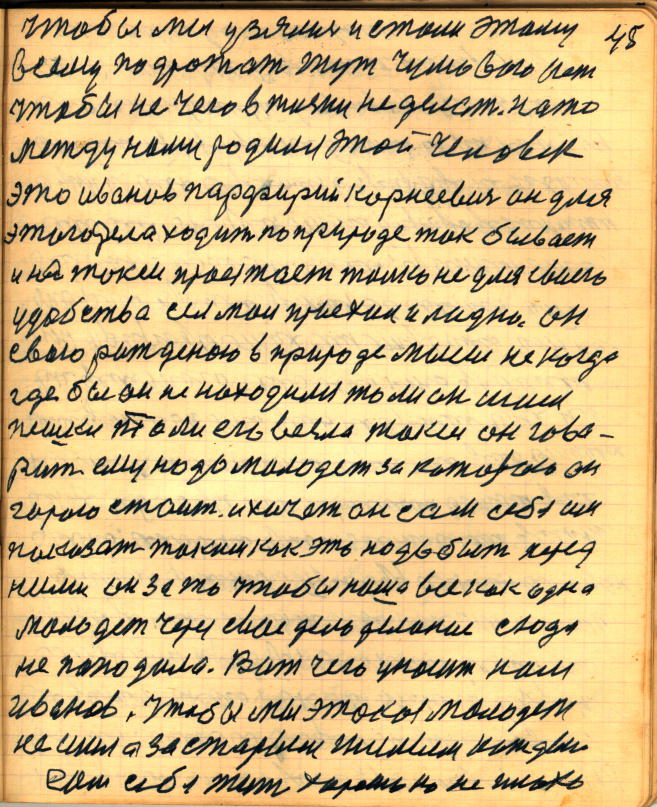 чтобы мы узялись и стали этому 48
всему подрожат тут чумового
чтобы не чего в жизни не делат. на то
между нами родился этой человек
это иванов парфирий корнеевич он для
этого дела ходит по природе так бывает
и на такси проезжает толко не для своего
удобства сел мол приехал и ладно. он
свого рожденою в природе мысли некогда
где бы он не находился то ли он шил
пешки то ли его везла такси он гова-
рит ему надо молодет за каторою он
горою стоит. и хочет он сам себя им
показат таким как это надо быт перед
ними он за то чтобы наша вся как одна
молодет через свое дело делание сюда
не попадала. Вот чего просит нас
иванов. чтобы мы этакая молодет
не шла за старым
сам себя хорошо но не плохо